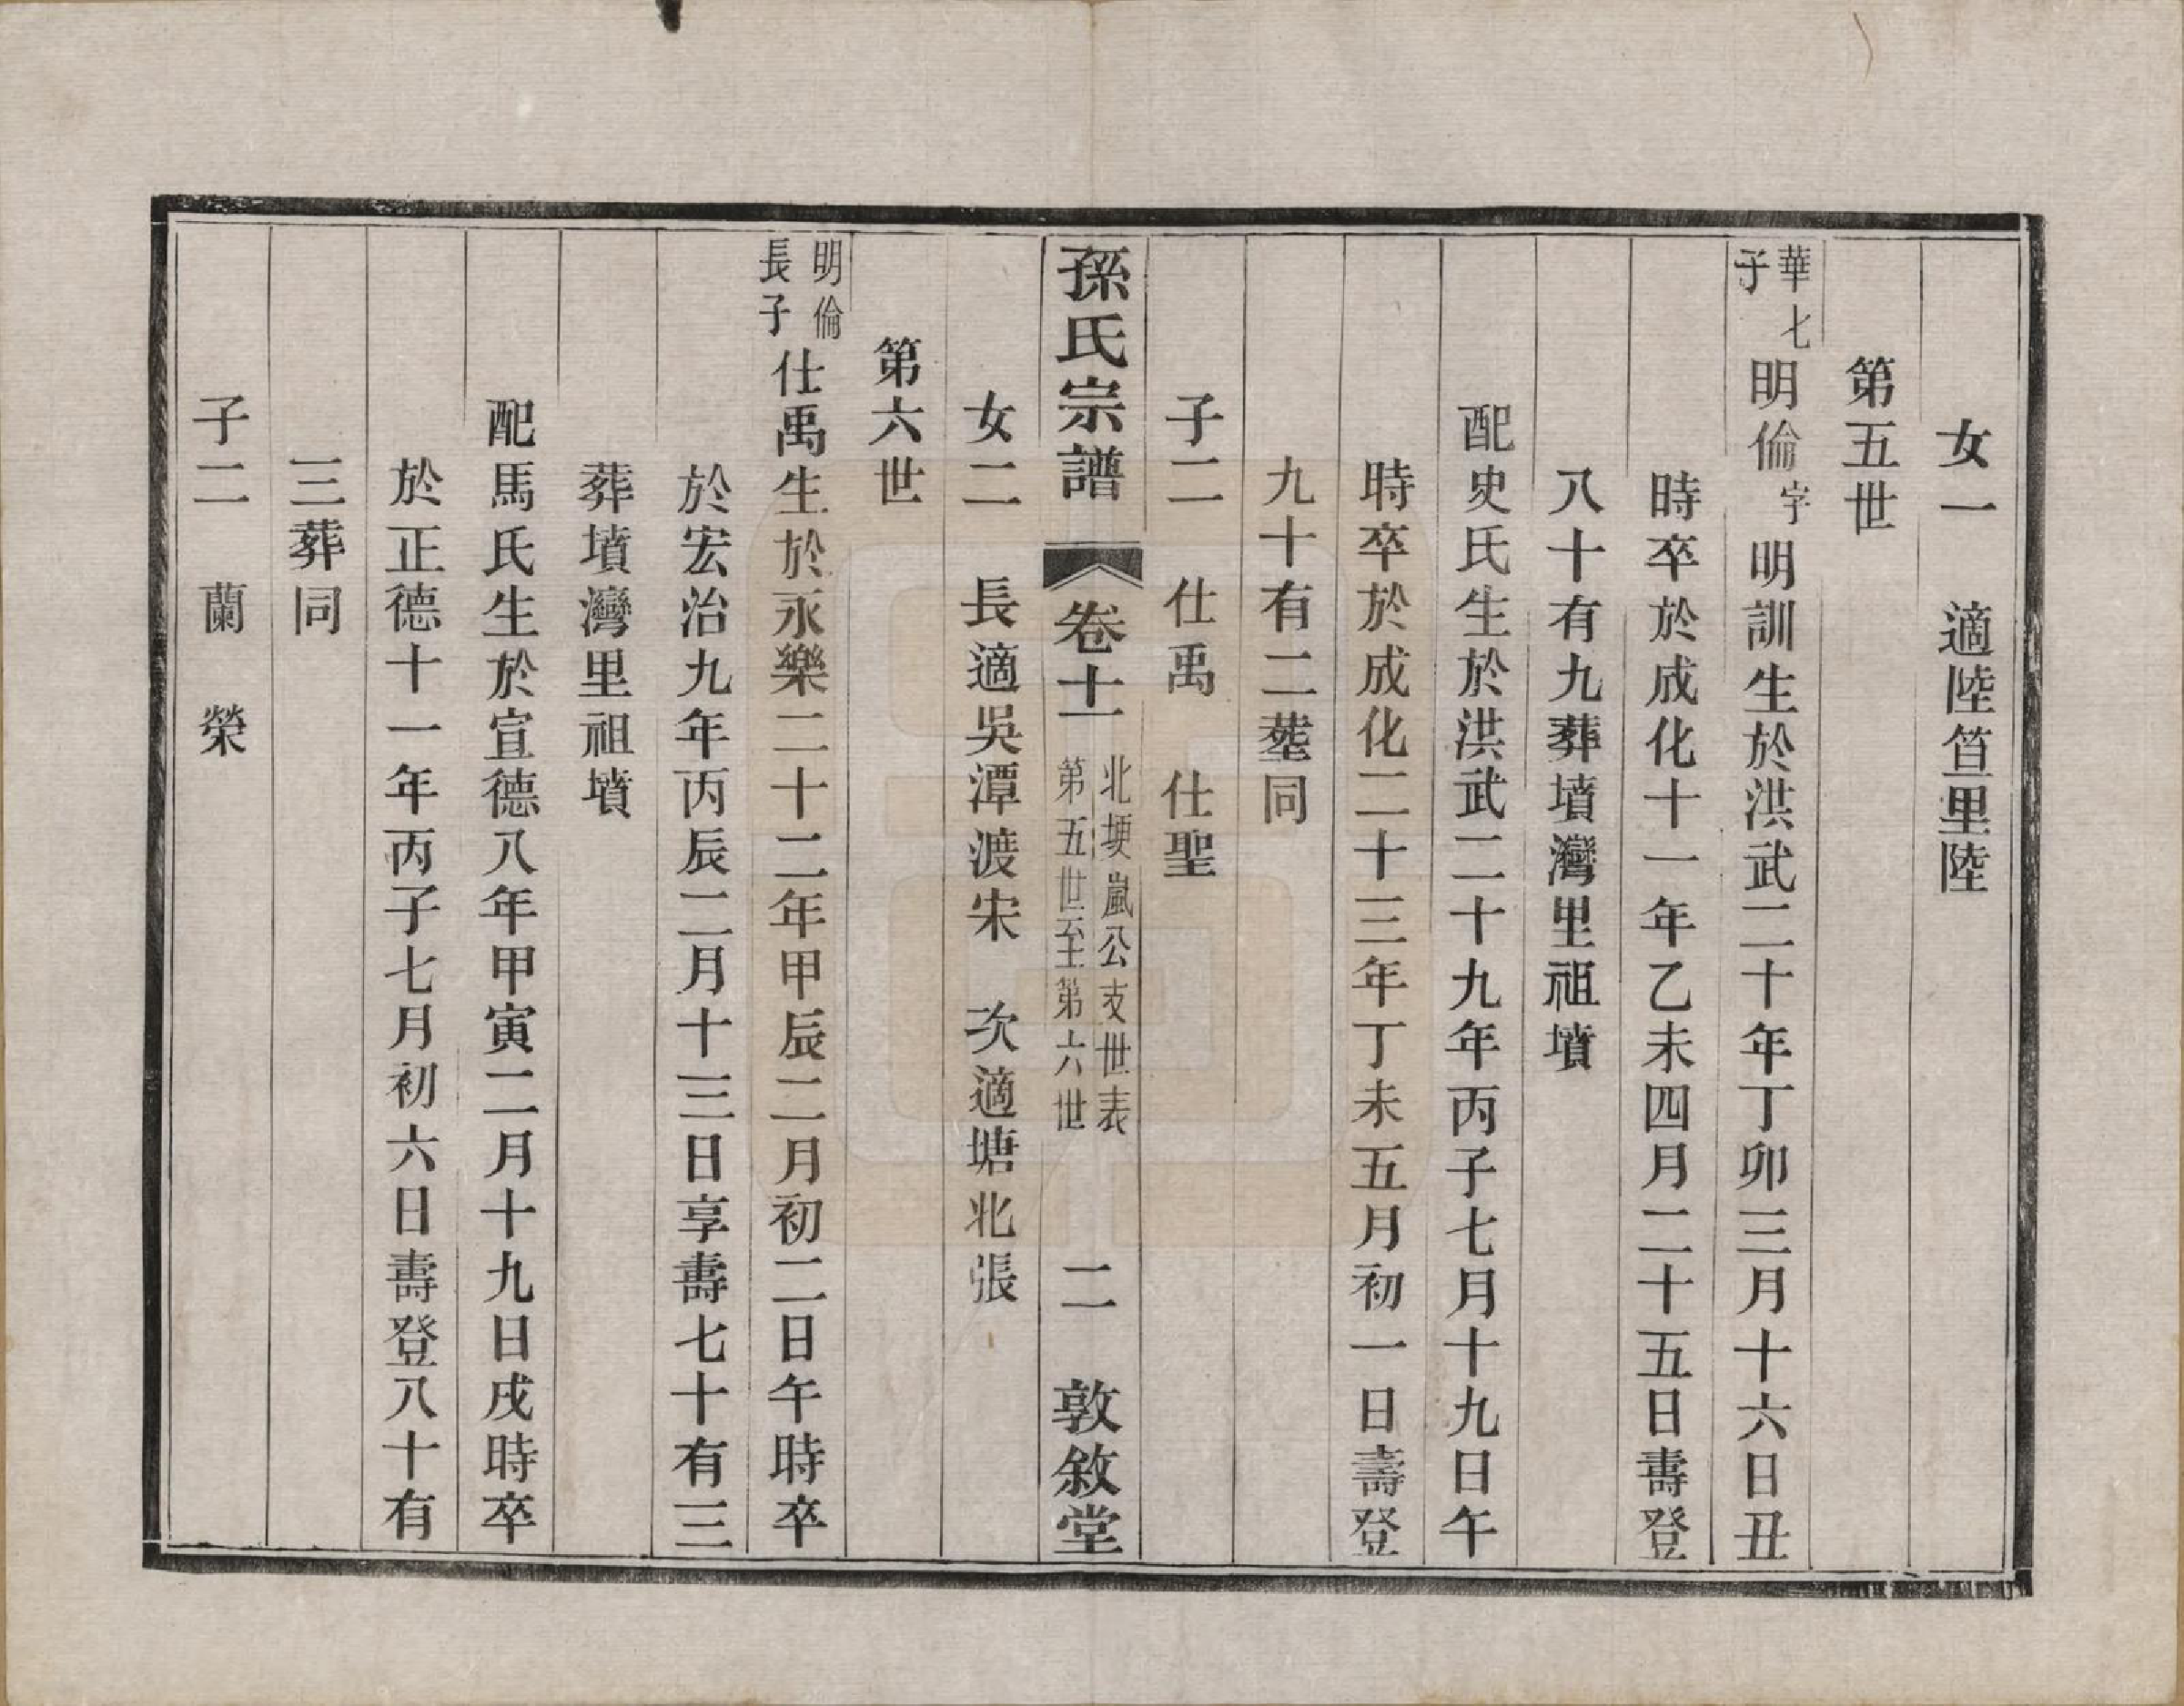 女一　適陸笪里陸
第五世
華七子明倫字明訓生於洪武二十年丁卯三月十六日丑
時卒於成化十一年乙未四月二十五日壽登
八十有九葬墳灣里祖墳
配史氏生於洪武二十九年丙子七月十九日午
時卒於成化二十三年丁未五月初一日壽登
九十有二塟同
子二　仕禹　仕聖
孫氏宗譜　卷十一　北埂嵐公支世表第五世至第六世　二　敦敘堂
女二　長適吳潭渡宋　次適塘北張
第六世
明倫長子仕禹生於永樂二十二年甲辰二月初二日午時卒
於宏治九年丙辰二月十三日享壽七十有三
葬墳灣里祖墳
配馬氏生於宣德八年甲寅二月十九日戌時卒
於正德十一年丙子七月初六日壽登八十有
三葬同
子二　蘭　榮